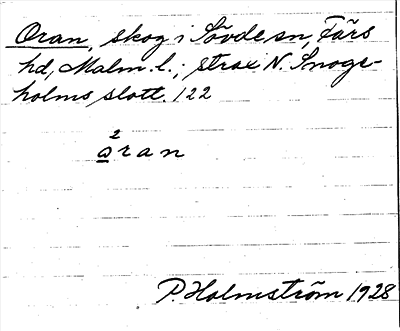 Oran, skog i Sövde sn, Färs
hd, Malm. l.; strax N. Snoge-
holms slott. 122
2
oran
P. Holmström 1928